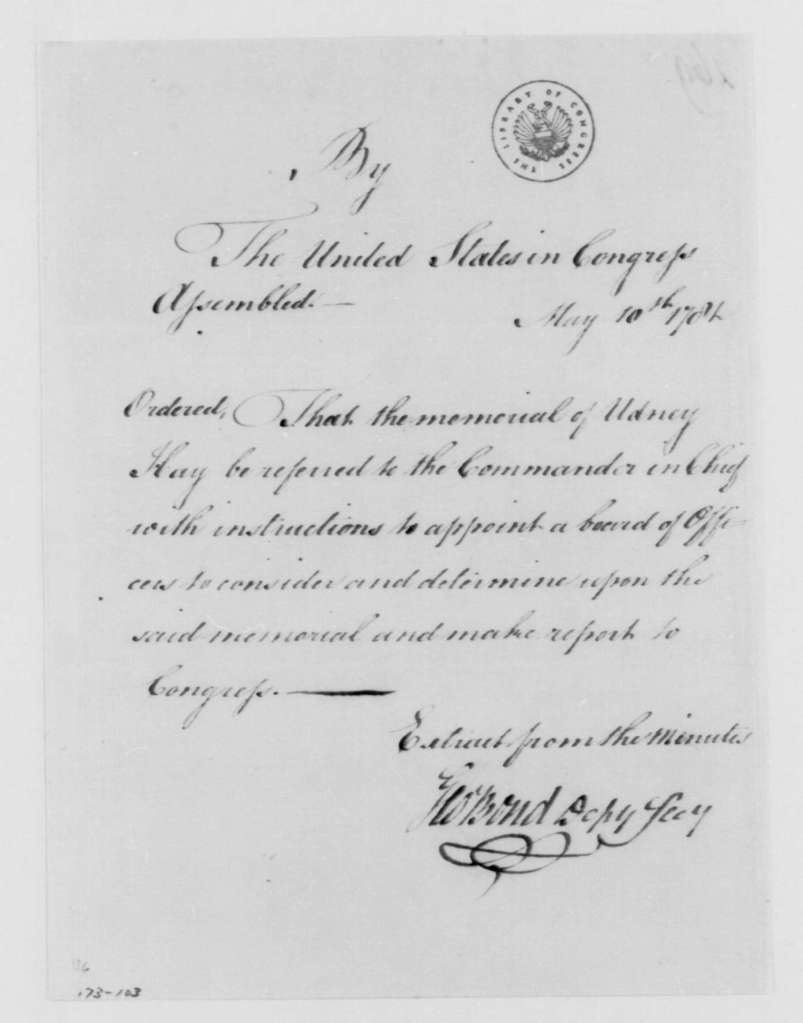 THE LIBRARY OF CONGRESS
By
The United States in Congress
Assembled.—
May 10th 1781
Ordered, That the memorial of Udney
Hay be referred to the Commander in Chief
with instructions to appoint a board of Offi-
cers to consider and determine upon the
said memorial and make report to
Congress.—
Extract from the Minutes
Geo Bond Depy Secy
173-103